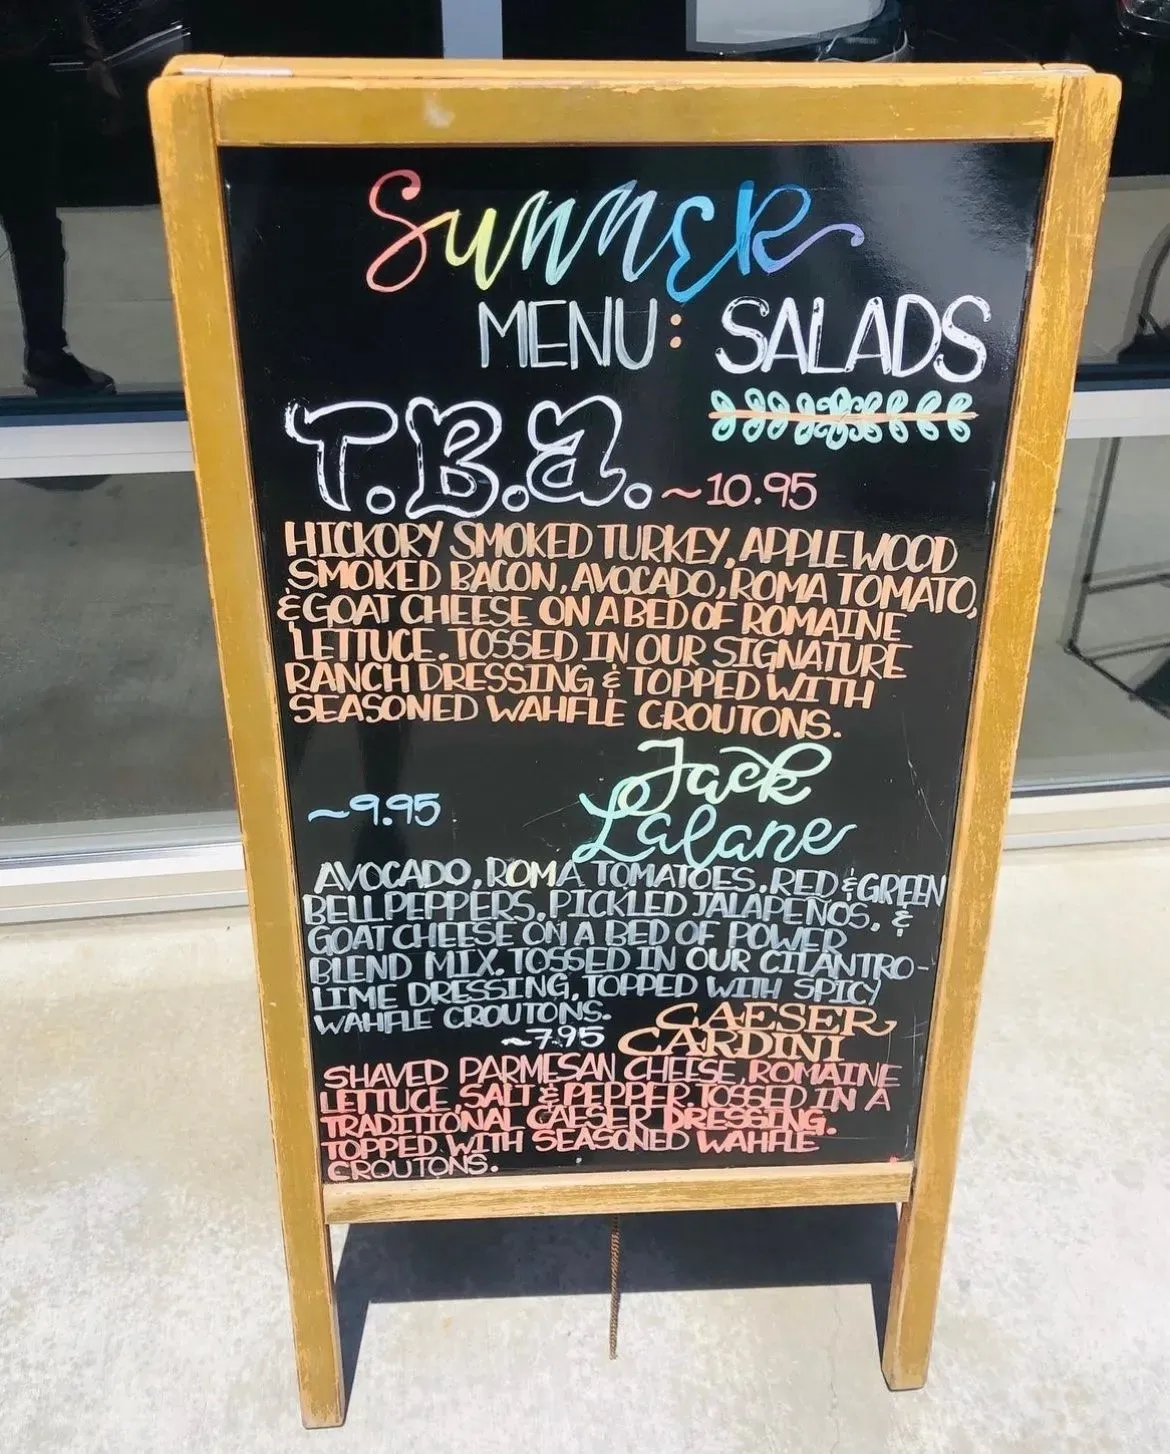 SUMMER
MENU: SALADS
T.B.a. ~10.95
HICKORY SMOKED TURKEY, APPLEWOOD
SMOKED BACON, AVOCADO, ROMA TOMATO,
& GOAT CHEESE ON A BED OF ROMAINE
LETTUCE. TOSSED IN OUR SIGNATURE
RANCH DRESSING & TOPPED WITH
SEASONED WAHFLE CROUTONS.
Jack
~9.95 Lalane
AVOCADO, ROMA TOMATOES, RED & GREEN
BELL PEPPERS, PICKLED JALAPEÑOS, &
GOAT CHEESE ON A BED OF POWER
BLEND MIX. TOSSED IN OUR CILANTRO-
LIME DRESSING, TOPPED WITH SPICY
WAHFLE CROUTONS.
CAESER
~7.95 CARDINI
SHAVED PARMESAN CHEESE, ROMAINE
LETTUCE, SALT & PEPPER TOSSED IN A
TRADITIONAL CAESER DRESSING.
TOPPED WITH SEASONED WAHFLE
CROUTONS.